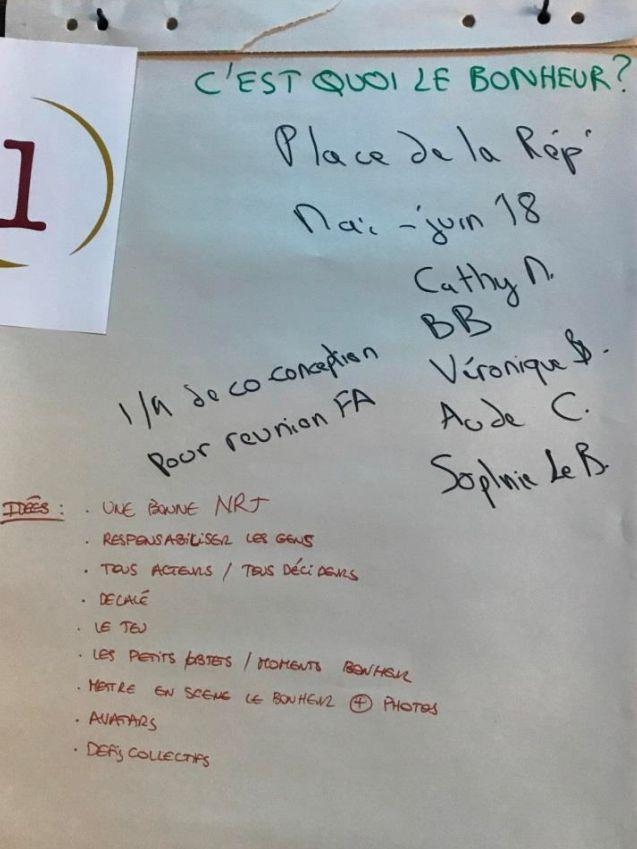 1)
C'EST QUOI LE BONHEUR?
Place de la Rép'
Mai - juin 18
Cathy M.
BB
Véronique B.
Aude C.
Sophie Le B.
de co conception
pour reunion FA
IDÉES :
. UNE BONNE NRJ
. RESPONSABILISER LES GENS
. TOUS ACTEURS / TOUS DÉCIDEURS
. DECALÉ
. LE JEU
. LES PETITS OBJETS / MOMENTS BONHEUR
. METTRE EN SCENE LE BONHEUR + PHOTOS
. AVATARS
. DEFIS COLLECTIFS